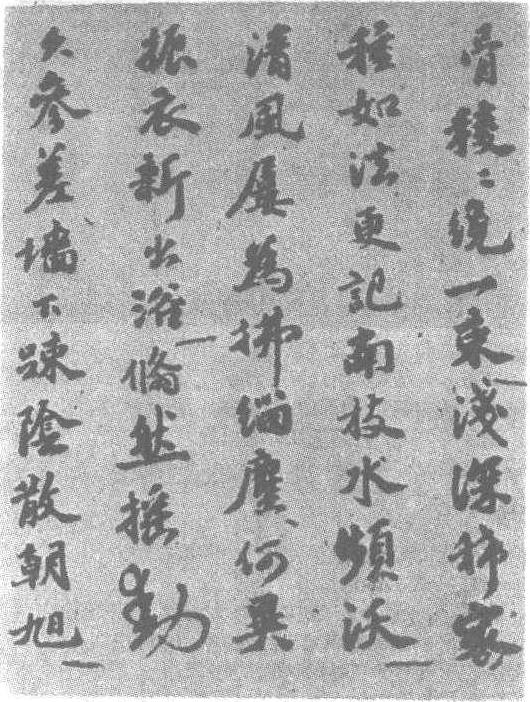 骨稜〻纔一束淺深稀密
種如法更記南枝水頻沃
清風屢為拂緇塵何異
振衣新出浴翛然搖動
久參差墻下踈陰散朝旭